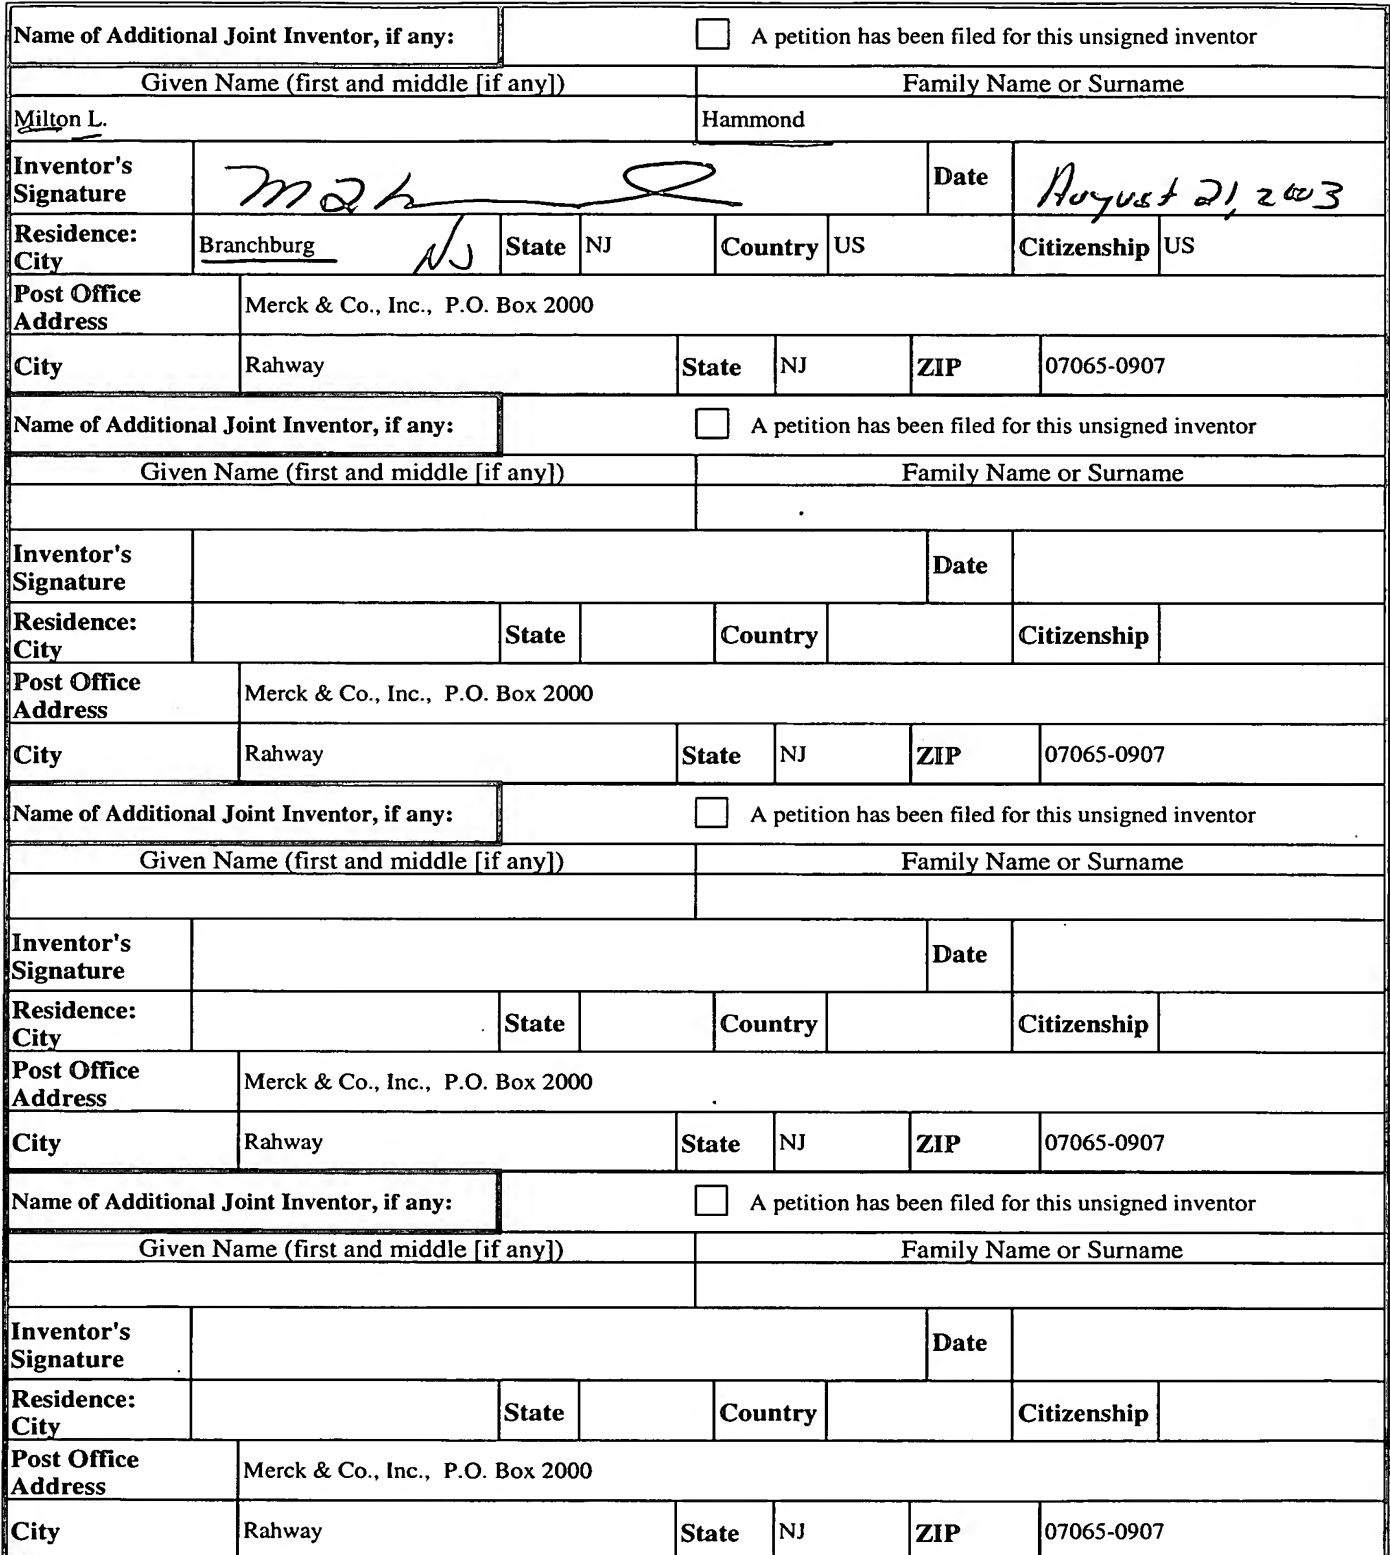 Name of Additional Joint Inventor, if any: A petition has been filed for this unsigned inventor
Given Name (first and middle [if any]) Family Name or Surname
Milton L. Hammond
Inventor's Signature Date August 21, 2003
Residence: City Branchburg NJ State NJ Country US Citizenship US
Post Office Address Merck & Co., Inc., P.O. Box 2000
City Rahway State NJ ZIP 07065-0907
Name of Additional Joint Inventor, if any: A petition has been filed for this unsigned inventor
Given Name (first and middle [if any]) Family Name or Surname
Inventor's Signature Date
Residence: City State Country Citizenship
Post Office Address Merck & Co., Inc., P.O. Box 2000
City Rahway State NJ ZIP 07065-0907
Name of Additional Joint Inventor, if any: A petition has been filed for this unsigned inventor
Given Name (first and middle [if any]) Family Name or Surname
Inventor's Signature Date
Residence: City State Country Citizenship
Post Office Address Merck & Co., Inc., P.O. Box 2000
City Rahway State NJ ZIP 07065-0907
Name of Additional Joint Inventor, if any: A petition has been filed for this unsigned inventor
Given Name (first and middle [if any]) Family Name or Surname
Inventor's Signature Date
Residence: City State Country Citizenship
Post Office Address Merck & Co., Inc., P.O. Box 2000
City Rahway State NJ ZIP 07065-0907